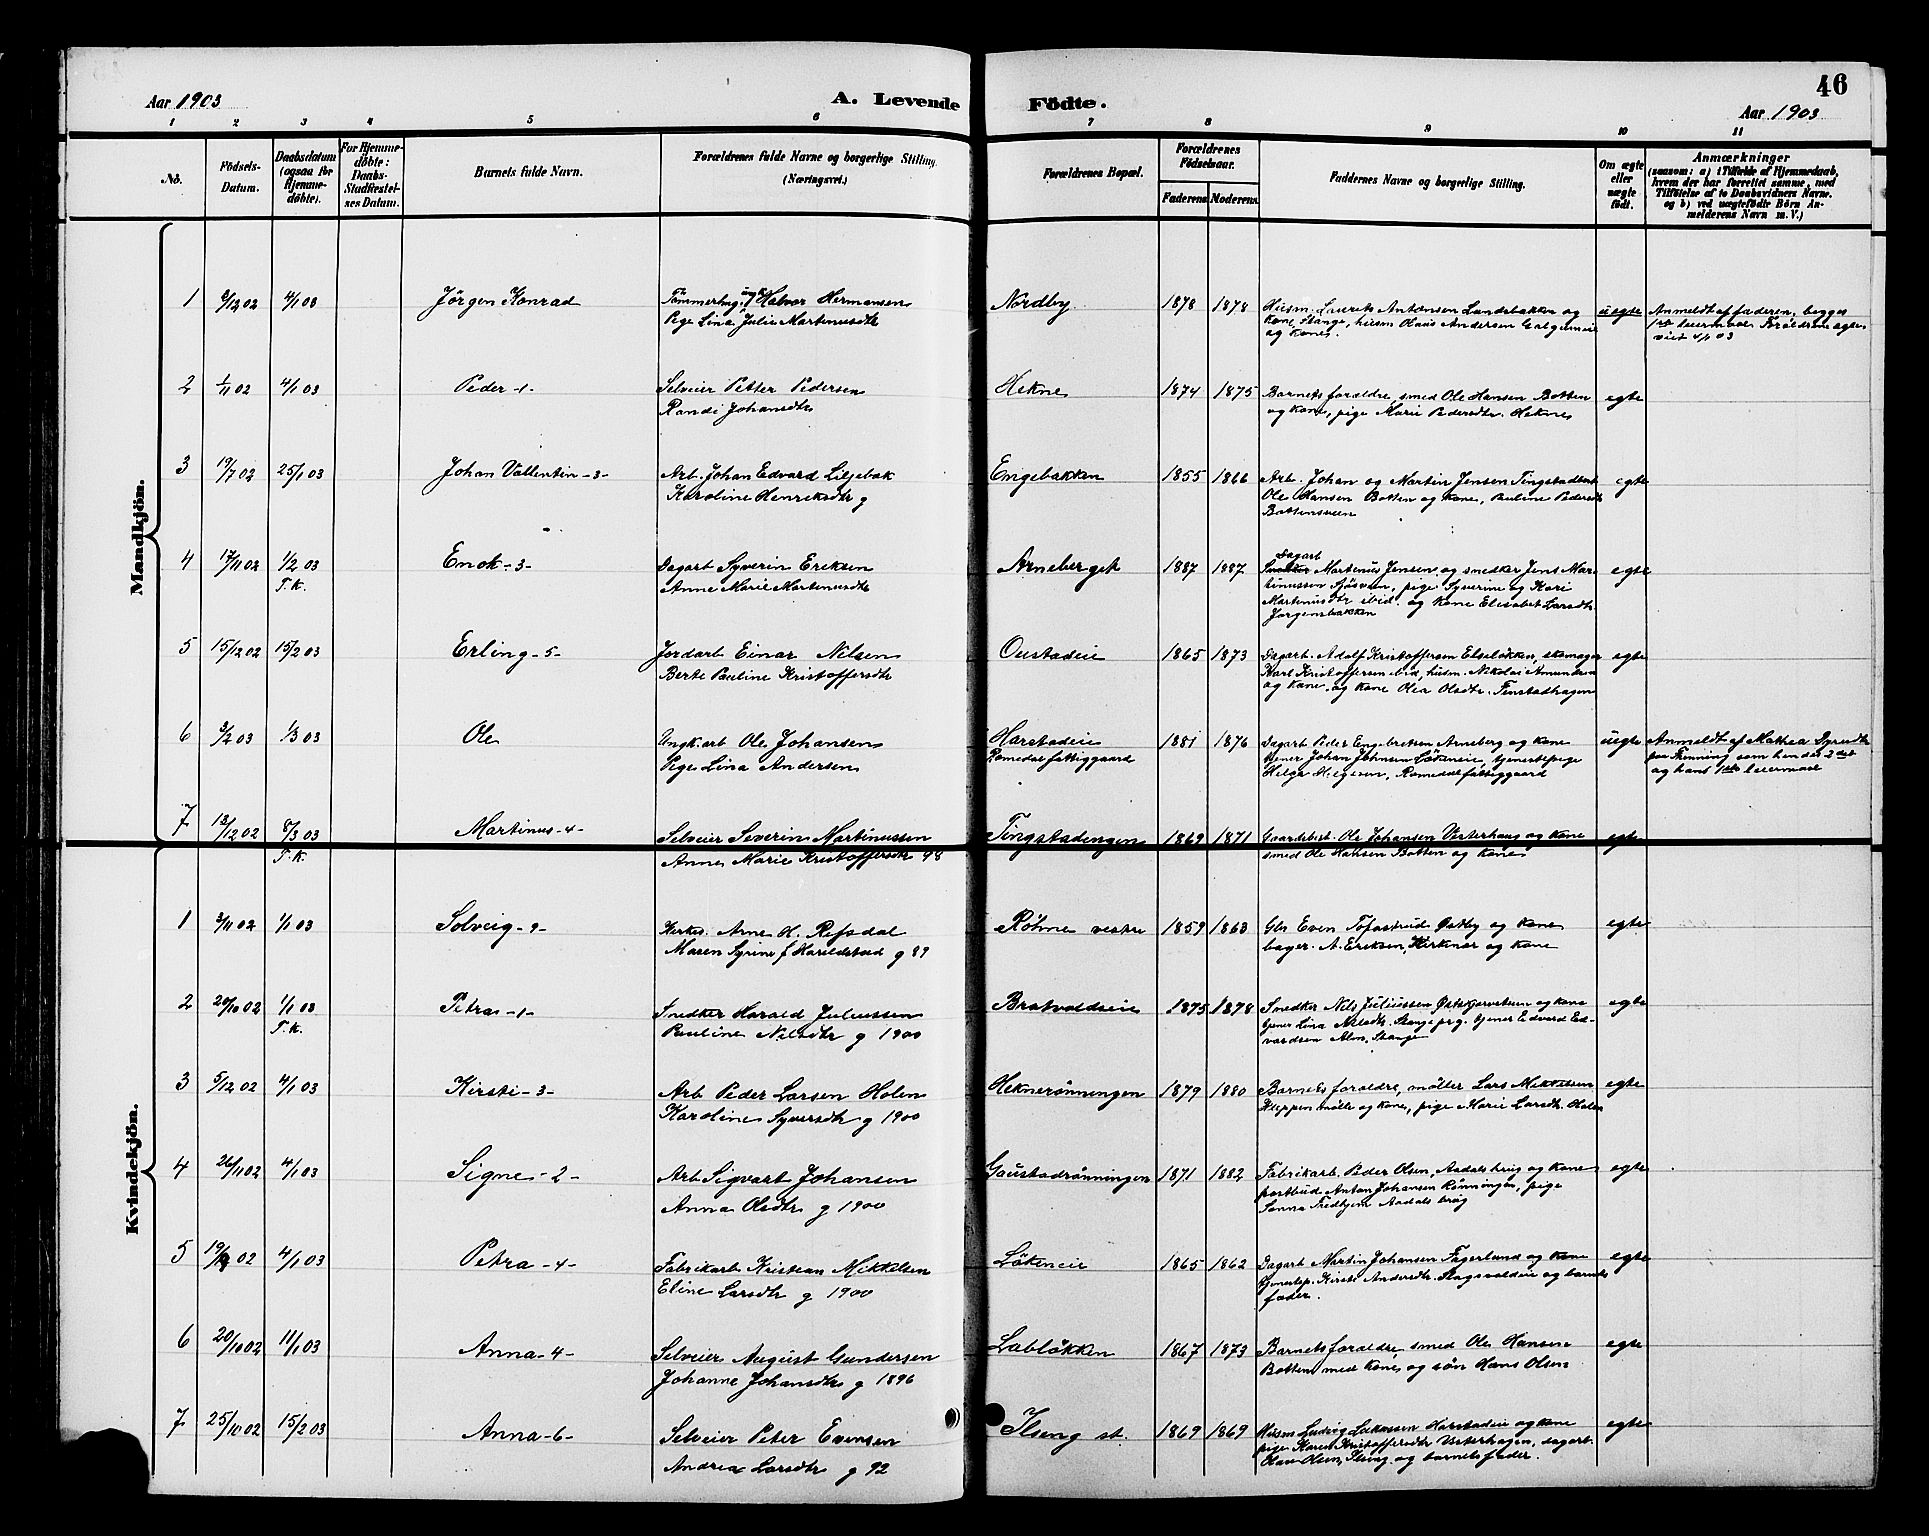 46
Aar 1903
A. Levende Födte.
Aar 1903
1 2 3 4 5 6 7 8 9 10 11
No.
Födsels-Datum.
Daabsdatum (ogsaa for Hjemme-döbte).
For Hjemme-döbte: Daabs-Stadfæstel-ses Datum.
Barnets fulde Navn.
Forældrenes fulde Navne og borgerlige Stilling. (Næringsvei.)
Forældrenes Bopæl.
Forældrenes Födselsaar.
Faderens Moderens
Faddernes Navne og borgerlige Stilling.
Om ægte eller uægte födt.
Anmærkninger
(saasom: a) i Tilfælde af Hjemmedaab,
hvem der har forrettet samme, med
Tilföielse af to Daabsvidners Navne.
og b) ved uægtefödte Börn An-
melderens Navn m. V.)
Mandkjön.
1 9/12 02 4/1 03 Jörgen Konrad Tömmerhug. ungk Halvor Hermansen Nordby 1878 1878 Husm. Laurits Antonsen Lundsbakken og uegte Anmeldt af faderen, begges
Pige Lina Julie Martinusdtr kone Stange, husm Hans Andersen Galgumeie 1ste leiermaal Forældrene egte-
og kone. viet 4/1 03
2 1/11 02 4/1 03 Peder -1- Selveier Petter Pedersen Hekne 1874 1875 Barnets forældre, smed Ole Hansen Botten egte
Randi Johansdtr og kone, pige Marie Pedersdtr. Hekne
3 19/7 02 25/1 03 Johan Vallentin -3- Arb. Johan Edvard Liljebak Engebakken 1855 1866 Arb. Johan og Martin Jensen Tingstadbak egte
Karoline Henriksdtr g Ole Hansen Botten og kone, Pauline Pedersdtr
Bottensveen
4 17/11 02 1/2 03 Enok -3- Dagarb Syverin Eriksen Arneberget 1887 1887 Dagarb Martenus Jensen og snedker Jens Mar- egte
T.K. Anne Marie Martinusdtr tinussen Sjøsveen, pige Syverine og Kari
Martenusdtr ibid. og kone Elisabet Larsdtr.
Jørgensbakken
5 15/12 02 15/2 03 Erling -5- Jordarb Einar Nilsen Oustadeie 1865 1873 Dagarb. Adolf Kristoffersen Elseløkken, skomager egte
Berte Pauline Kristoffersdtr Karl Kristoffersen ibid, husm. Nikolai Amundsen
og kone. og kone Olea Olsdtr. Finstadhagen
6 3/2 03 1/3 03 Ole Ungk. arb Ole Johansen Harstadeie 1881 1876 Dagarb Peder Engebretsen Arneberg og kone uegte Anmeldt af Mathea Dyresdtr
Pige Lina Andersen Romedal fattiggaard tjener Johan Johnsen Løkeneie, tjenestepige paa Thenning som hendes 2det
Helga Helgesen, Romedal fattiggaard og hans 1ste leiermaal
7 13/12 02 8/3 03 Martinus -4- Selveier Severin Martinussen Tingstadengen 1869 1871 Gaardsbest. Ole Johansen Vesterhaug og kone egte
T.K. Anne Marie Kristoffersdtr 98 smed Ole Hansen Botten og kone
Kvindekjön.
1 3/11 02 1/1 03 Solveig -9- Kirkes. Arne H. Refsdal Røhne vestre 1859 1863 Gbr Even Tofastrud Østby og kone egte
Maren Syrine f Harildstad g 89 bager. A. Eriksen, Kirkenær og kone
2 20/10 02 1/1 03 Petra -1- Snedker Harald Juliussen Bratvoldseie 1875 1878 Snedker Nils Juliussen Østskjærvetuen og kone egte
T.K. Pauline Nilsdtr g 1900 tjener Lina Nilsdtr. Stange prg. tjener Edvard Ed-
vardsen Alm, Stange
3 5/12 02 4/1 03 Kirsti -3- Arb Peder Larsen Holen Heknerønningen 1879 1880 Barnets forældre, møller Lars Mikkelsen egte
Karoline Syversdtr g 1900 Kleppen mølle og kone, pige Marie Larsdtr. Holen
4 26/11 02 4/1 03 Signe -2- Arb Sigvart Johansen Gaustadrønningen 1871 1882 Fabrikarb. Peder Olsen, Aadalsbrug og kone egte
Anna Olsdtr g 1900 postbud Anton Johansen Rønningen, pige
Sanna Fredhjem Aadals brug
5 19/9 02 4/1 03 Petra -4- Fabrikarb Kristian Mikkelsen Løkeneie 1865 1862 Dagarb Martin Johansen Fagerlund og kone egte
Eline Larsdtr g 1900 tjenestep. Kirsti Andersdtr. Slagsvoldeie og barnets
fader.
6 20/10 02 11/1 03 Anna -4- Selveier August Gundersen Labløkken 1867 1873 Barnets forældre, smed Ole Hansen egte
Johanne Johansdtr g 1896 Botten med kone og søn Hans Olsen
7 25/10 02 15/2 03 Anna -6- Selveier Peter Evensen Ilseng st. 1869 1869 Husm Ludvig Lukassen Harstadeie og kone egte
Andrea Larsdtr g 92 pige Karen Kristoffersdtr Vesterhagen, dagarb.
Olaus Olsen, Ilseng. og barnets fader.